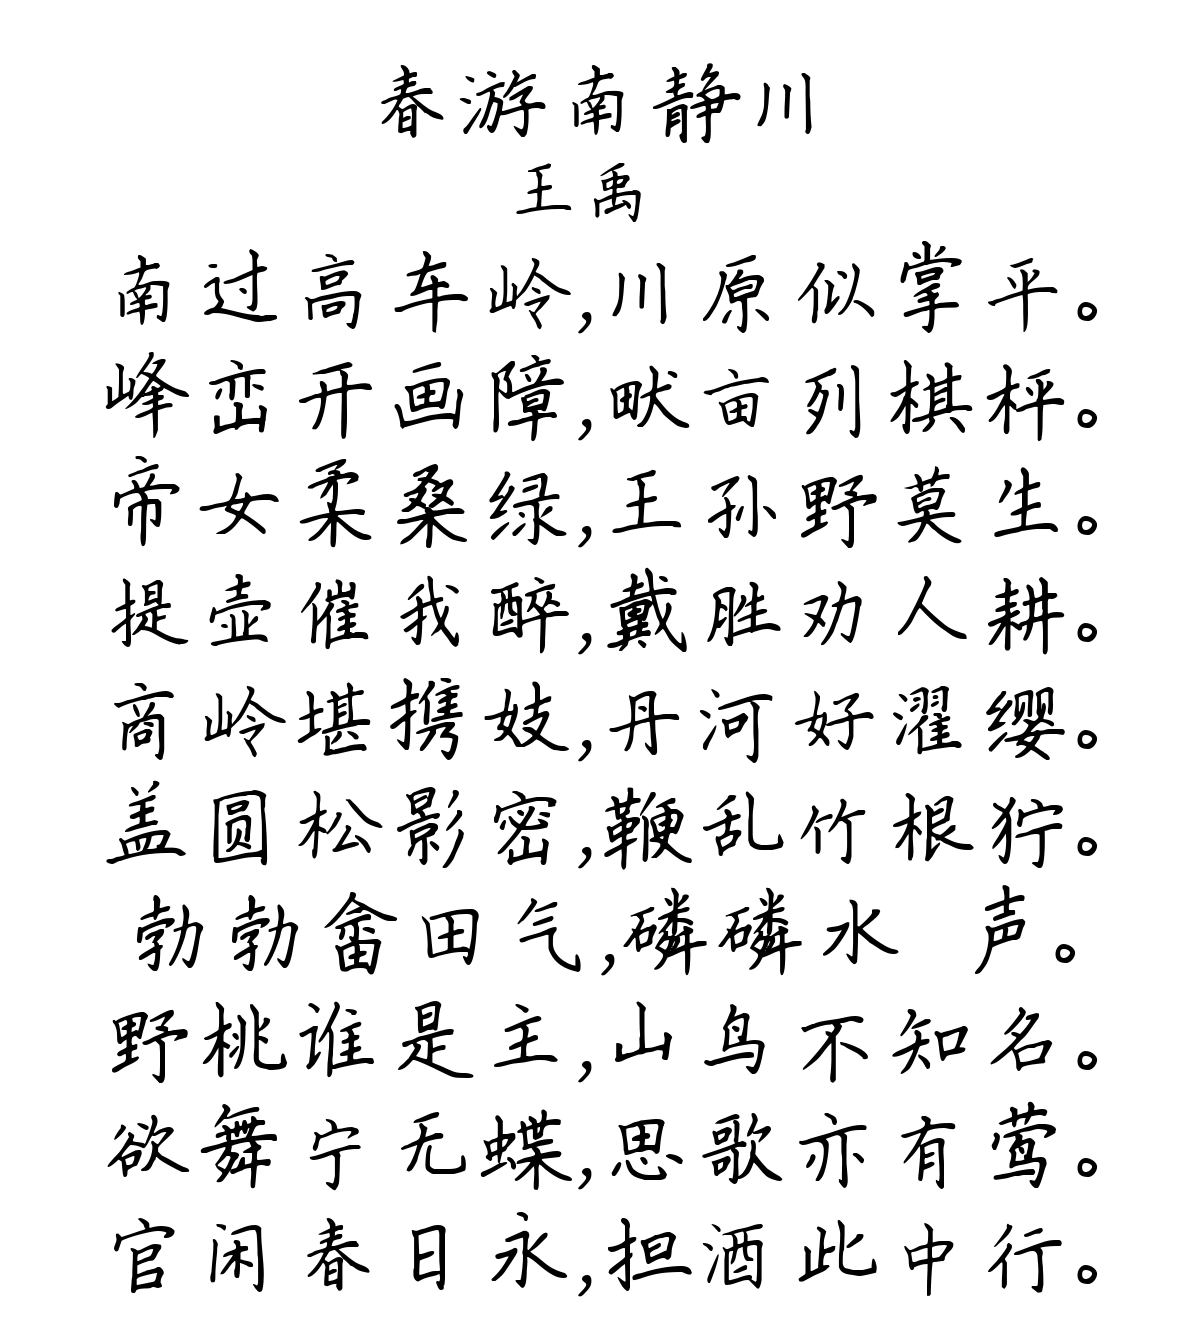 春游南静川
王禹
南过高车岭,川原似掌平。
峰峦开画障,畎亩列棋枰。
帝女柔桑绿,王孙野莫生。
提壶催我醉,戴胜劝人耕。
商岭堪携妓,丹河好濯缨。
盖圆松影密,鞭乱竹根狞。
勃勃畬田气,磷磷水 声。
野桃谁是主,山鸟不知名。
欲舞宁无蝶,思歌亦有莺。
官闲春日永,担酒此中行。